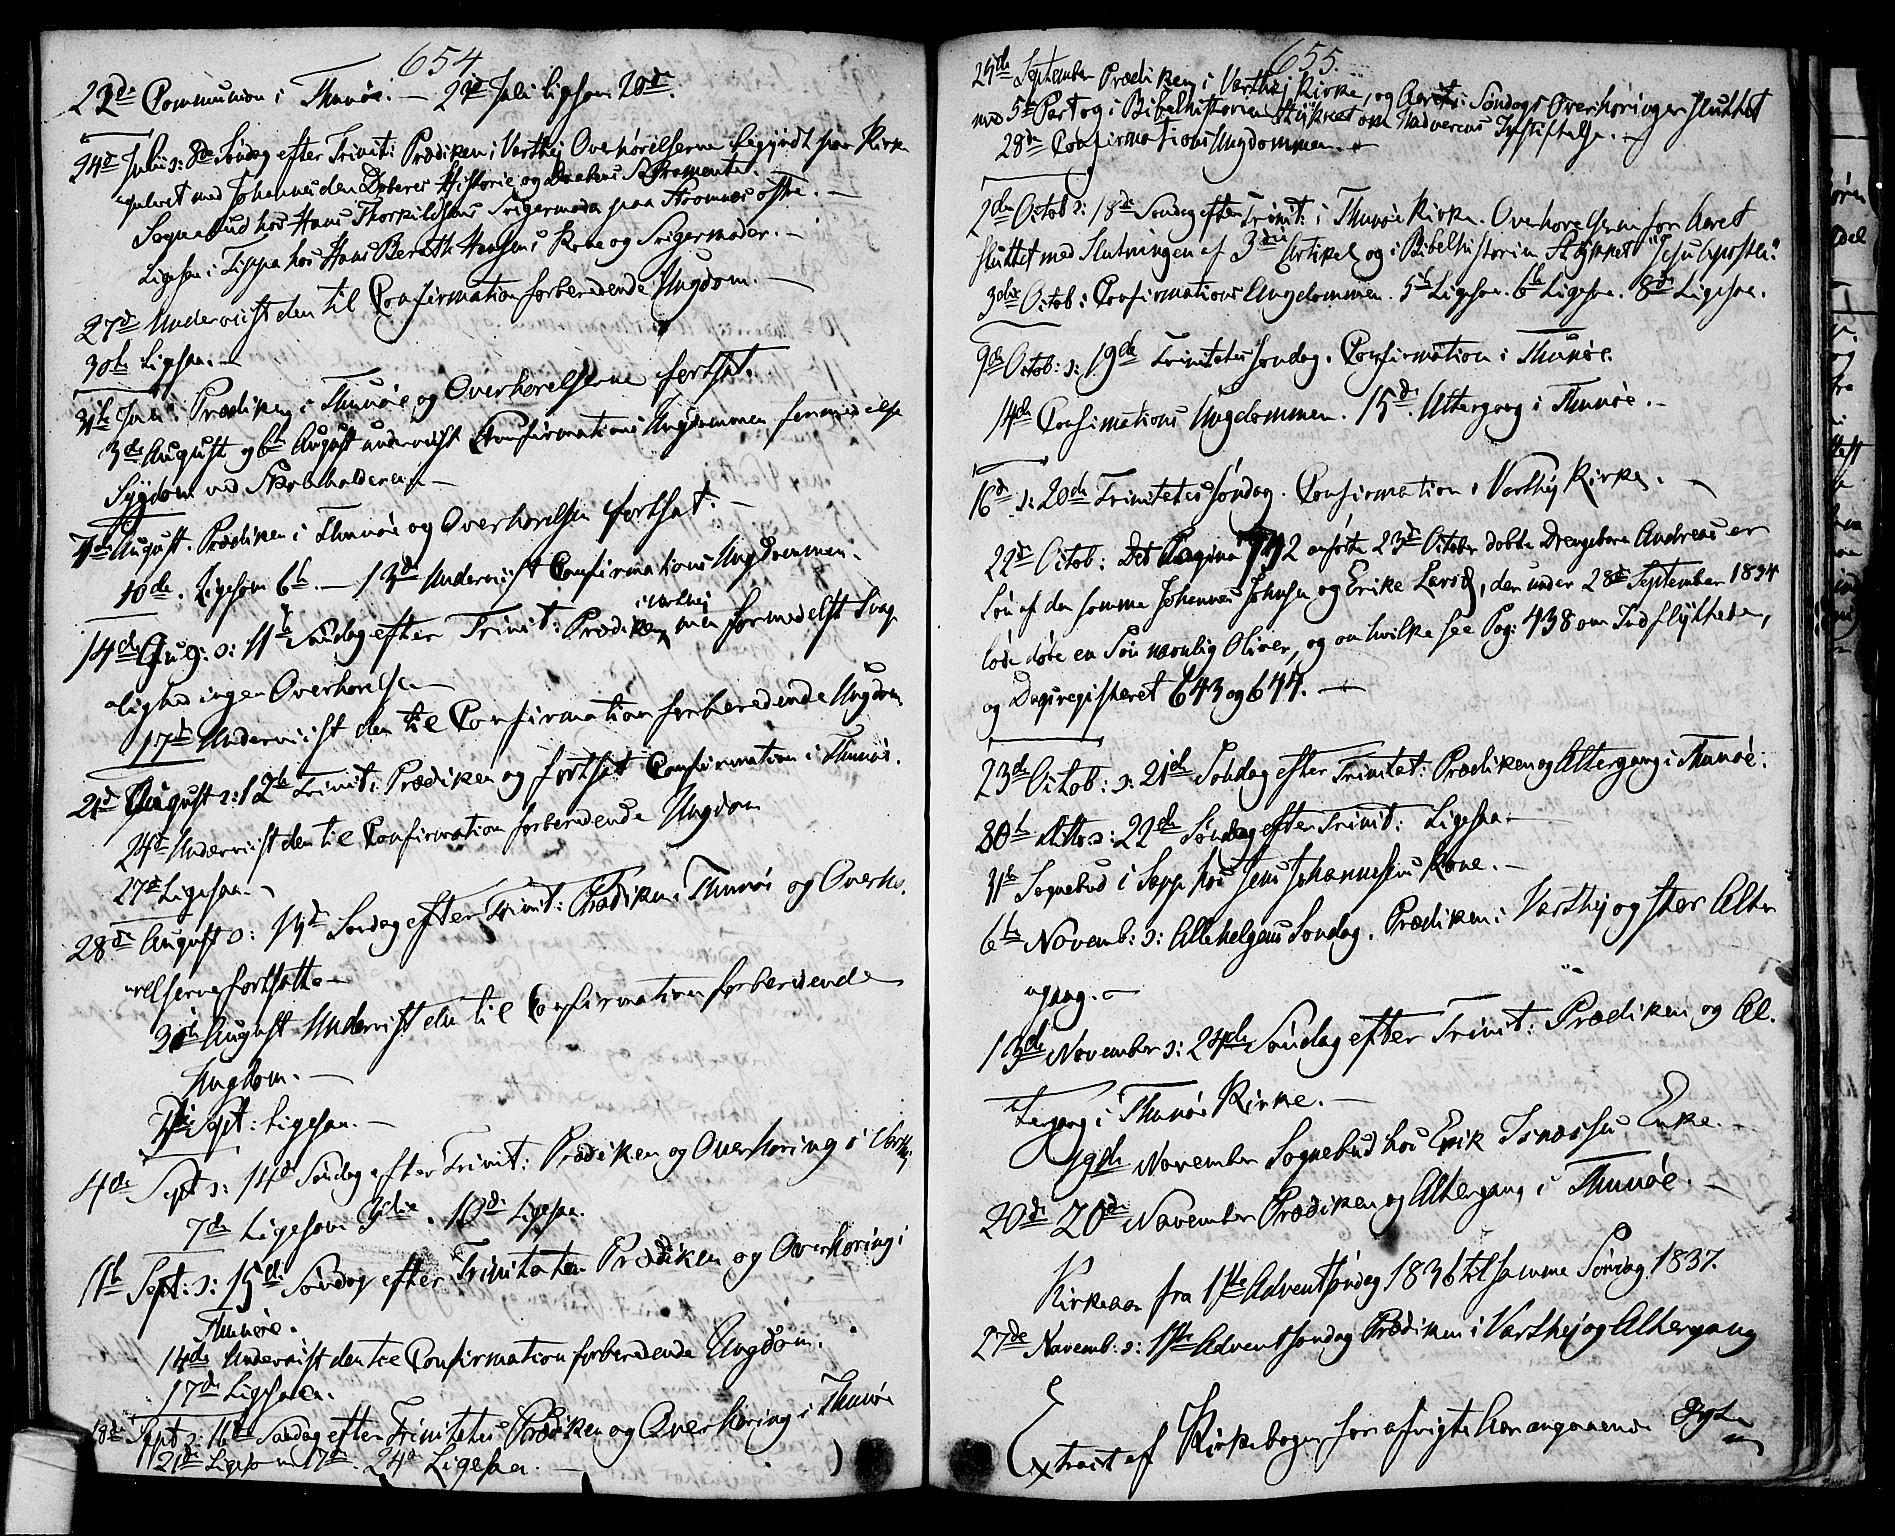 654
23de Communion i Thunøe. — 24de Juli ligesom 20de.
24de Julii ɔ: 8de Søndag efter Trinit: Prædiken i Varthej Overhørelserne begyndt paa Kirke
gulvet med Johannes den Døberes Historie og Daabens Sacramente.
Sognebud hos Hans Thorkildsens Svigermoder paa Stromnes østre. —
Ligesaa i Lippa hos Hans Berndth Hansens Kone og Svigermoder. —
27de Underviist den til Confirmation forberedende Ungdom. —
30te Ligesaa. —
31te Julii. Prædiken i Thunøe og Overhørelserne fortsat.
3de August og 6te August underviist Confirmations Ungdommen formedelst
Sygdom ved
7de August. Prædiken i Thunøe og Overhørelsen fortsat. —
10de. Ligesom 6te. — 13de Underviist Confirmations Ungdommen.
i Varthej
14de Aug: ɔ: 11te Søndag efter Trinit: Prædiken men formedelst Svag
elighed ingen Overhørelse —
17de Underviist den til Confirmation forberedende Ungdom
21de August ɔ: 12te Trinit: Prædiken og fortsat Confirmation i Thunøe.
24de Underviist den til Confirmation forberedende Ungdom
27de Ligesaa. —
28de August ɔ: 13de Søndag efter Trinit: Prædiken i Thunøe og Overhø-
relserne fortsatte —
31te August Underviist den til Confirmation forberedende
Ungdom. —
Sept: Ligesaa. —
4de Sept ɔ: 14de Søndag efter Trinit: Prædiken og Overhøring i Varthej
7de Ligesom 3die. 10de Ligesaa.
11te Sept: ɔ: 15de Søndag efter Trinitatem Prædiken og Overhøring i
Thunøe.
14de Underviist den til Confirmation forberedende Ungdom.
17de Ligesaa.
18de Sept ɔ: 16de Søndag efter Trinitatis Prædiken og Overhøring i Thunøe
21de Ligesom 17de. 24de Ligesaa. —
655.
25de September Prædiken i Varthej Kirke, og Aarets Søndags Overhøringer sluttet
med 5te Part og i Bibelhistorien Stykket om Nadverens Indstiftelse. —
28de Confirmations Ungdommen. —
2den Octob ɔ: 18de Søndag efter Trinit: i Thunøe Kirke. Overhørelsen for Aaret
sluttet med Slutningen af 3die Artikel og i Bibelhistorien Stykket "Jesu Apostle."
3die Octob: Confirmations Ungdommen. 5te Ligesaa. 6te Ligesaa. 8de Ligesaa.
9de Octob: ɔ: 19de Trinitatis Søndag. Confirmation i Thunøe.
14de Confirmations Ungdommen. 15de. Altergang i Thunøe. —
16de ɔ: 20de Trinitatis Søndag. Confirmation i Varthej Kirke. —
22de Octob: Det Pagina anførte 23de October døbte Drengebarn Andreas er
Søn af den samme Johannes Johnsen og Erike Larsd, der under 28de September 1834
lode døbe en Søn navnlig Oliver, og om hvilke see Pag: 438 om Indflyttede,
og Dagsregisteret 643 og 644. —
23de Octob: ɔ: 21de Søndag efter Trinitat: Prædiken og Altergang i Thunøe.
30te ditto ɔ: 22de Søndag efter Trinit: Ligesaa —
31te Sognebud i Sopp hos Jens Johannesens Kone. —
6te Novemb: ɔ: Allehelgens Søndag. Prædiken i Varthej og efter Alter
gang. —
13de November ɔ: 24de Søndag efter Trinit: Prædiken og Al-
tergang i Thunøe Kirke. —
19de November Sognebud hos Erik Isaksens Enke. —
20de 20de November Prædiken og Altergang i Thunøe. —
Kirkeaar fra 1ste Adventsøndag 1836 til samme Søndag 1837.
27de Novemb: ɔ: 1ste Advent Søndag Prædiken i Varthej og Altergang
Extract af Kirkebogen for afvigte Aar angaaende